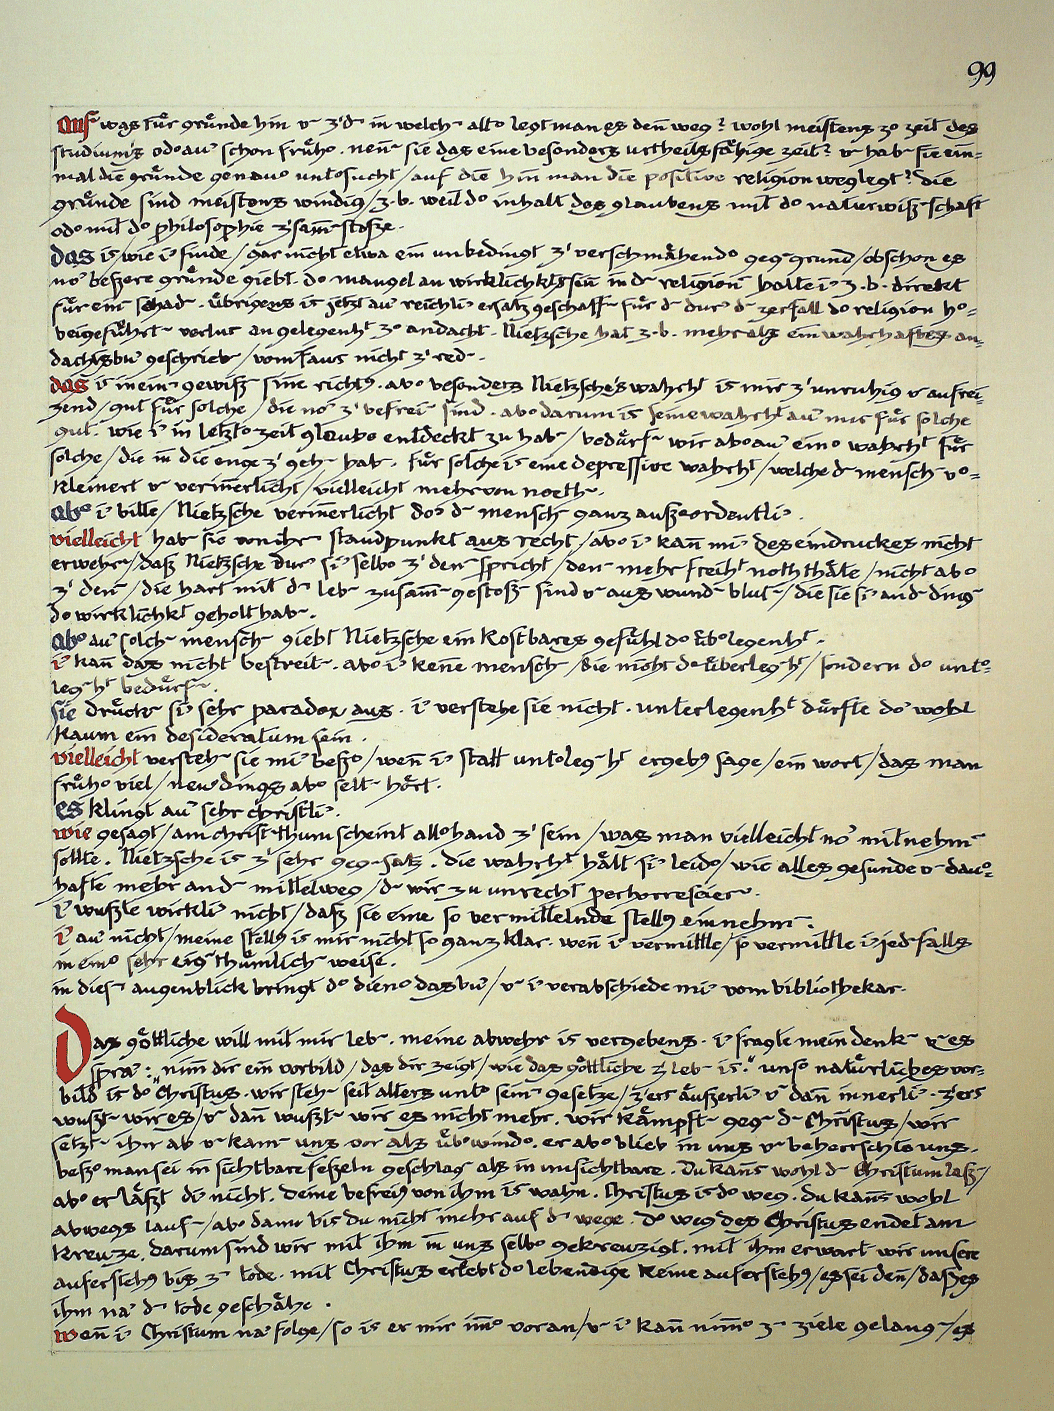 99
auf was für gründe hin u z'd in welch alto legt man es den weg? wohl meistens zo zeit des
studium's odo au schon früho. nen sie das eine besonders urtheilsfähige zeit? u hab sie ein=
mal die gründe genauo untosucht, auf die hin man die positive religion weglegt? die
gründe sind meistens windig, z.b. weil do inhalt des glaubens mit do naturwiß schaft
odo mit do philosophie z'sam stoße.
das is, wie i finde, gar nicht etwa ein unbedingt z' verschmähendo geg grund, obschon es
no beßere gründe giebt. do mangel an wirklichkts sin in d religion halte i z.b. direkt
für ein schad. übrigens is jetzt au reichli ersatz geschaff für d dur d zerfall do religion ho=
beigeführt verlust an gelegenht zo andacht. Nietzsche hat z.b. mehr als ein wahrhaftes an=
dachtsbu geschrieb, vom faust nicht z' red.
das is in mein gewiß sine richtg. abo besonders Nietzsche's wahrht is mir z' unruhig u aufrei=
zend, gut für solche, die no z' befrei sind. abo darum is seine wahrht au nur für solche
gut. wie i in letzto zeit glaubo entdeckt zu hab, bedürf wir abo au eino wahrht für
solche, die in die enge z' geh hab. für solche is eine depressive wahrht, welche d mensch vo=
kleinert u verinerlicht, vielleicht mehr von noeth.
abo i bitte, Nietzsche verinerlicht do d mensch ganz außeordentli.
vielleicht hab sie von ihr standpunkt aus recht, abo i kan mi des eindruckes nicht
erwehr, daß Nietzsche dur si selbo z' den spricht, den mehr freiht noth thäte, nicht abo
z' den, die hart mit d leb zusam gestoß sind u aus wund blut, die sie si an d ding
do wirklichkt geholt hab.
abo au solch mensch giebt Nietzsche ein kostbares gefühl do übolegenht.
i kan das nicht bestreit. abo i kene mensch, die nicht do überleg ht, sondern do unto=
leg ht bedürf.
sie drück si sehr paradox aus. i verstehe sie nicht. unterlegenht dürfte do wohl
kaum ein desideratum sein.
vielleicht versteh sie mi beßo, wen i statt untoleg ht ergebg sage, ein wort, das man
früho viel, neuo dings abo selt hört.
es klingt au sehr christli.
wie gesagt, am christ thum scheint allohand z' sein, was man vielleicht no mitnehm
sollte. Nietzsche is z' sehr geg satz. die wahrht hält si leido, wie alles gesunde u dauo=
hafte mehr an d mittelweg, d wir zu unrecht perhorreseier.
i wußte wirkli nicht, daß sie eine so vermittelnde stellg einnehm.
i au nicht, meine stellg is mir nicht so ganz klar. wen i vermittle, so vermittle i jed falls
in eino sehr eig thümlich weise.
in dies augenblick bringt do dieno das bu, u i verabschiede mi vom bibliothekar.
Das göttliche will mit mir leb. meine abwehr is vergebens. i fragte mein denk u es
spra: „nim dir ein vorbild, das dir zeigt, wie das göttliche z' leb is." unso natürliches vor=
bild is do Christus. wir steh seit alters unto sein gesetze, z'ers äußerli u dan innerli. z'ers
wußt wir es, u dan wußt wir es nicht mehr. wir kämpft geg d Christus, wir
setzt ihn ab u kam uns vor als übowindo. er abo blieb in uns u beherrschte uns.
beßo man sei in sichtbare feßeln geschlag als in unsichtbare. Du kans wohl d Christum laß,
abo er läßt di nicht. deine befreig von ihm is wahn. Christus is do weg. du kans wohl
abwegs lauf, abo dann bis du nicht mehr auf d wege. do weg des Christus endet am
kreuze. darum sind wir mit ihm in uns selbo gekreuzigt. mit ihm erwart wir unsere
auferstehg bis z' tode. mit Christus erlebt do lebendige keine auferstehg, es sei den, daß es
ihm na d tode geschähe.
wen i Christum na folge, so is er mir imo voran, u i kan nim z' ziele gelang, es